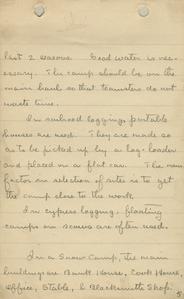 last 2 seasons. Good water is nec-
essary. The camp should be on the
main haul so that teamsters do not
waste time.
In railroad logging, portable
houses are used. They are made so
as to be picked up by a log-loader
and placed on a flat car. The main
factor in selection of sites is to get
the camp close to the work.
In cypress logging, floating
camps on scows are often used.
In a Snow Camp, the main
buildings are Bunk House, Cook House,
Office, Stable, & Blacksmith Shop.